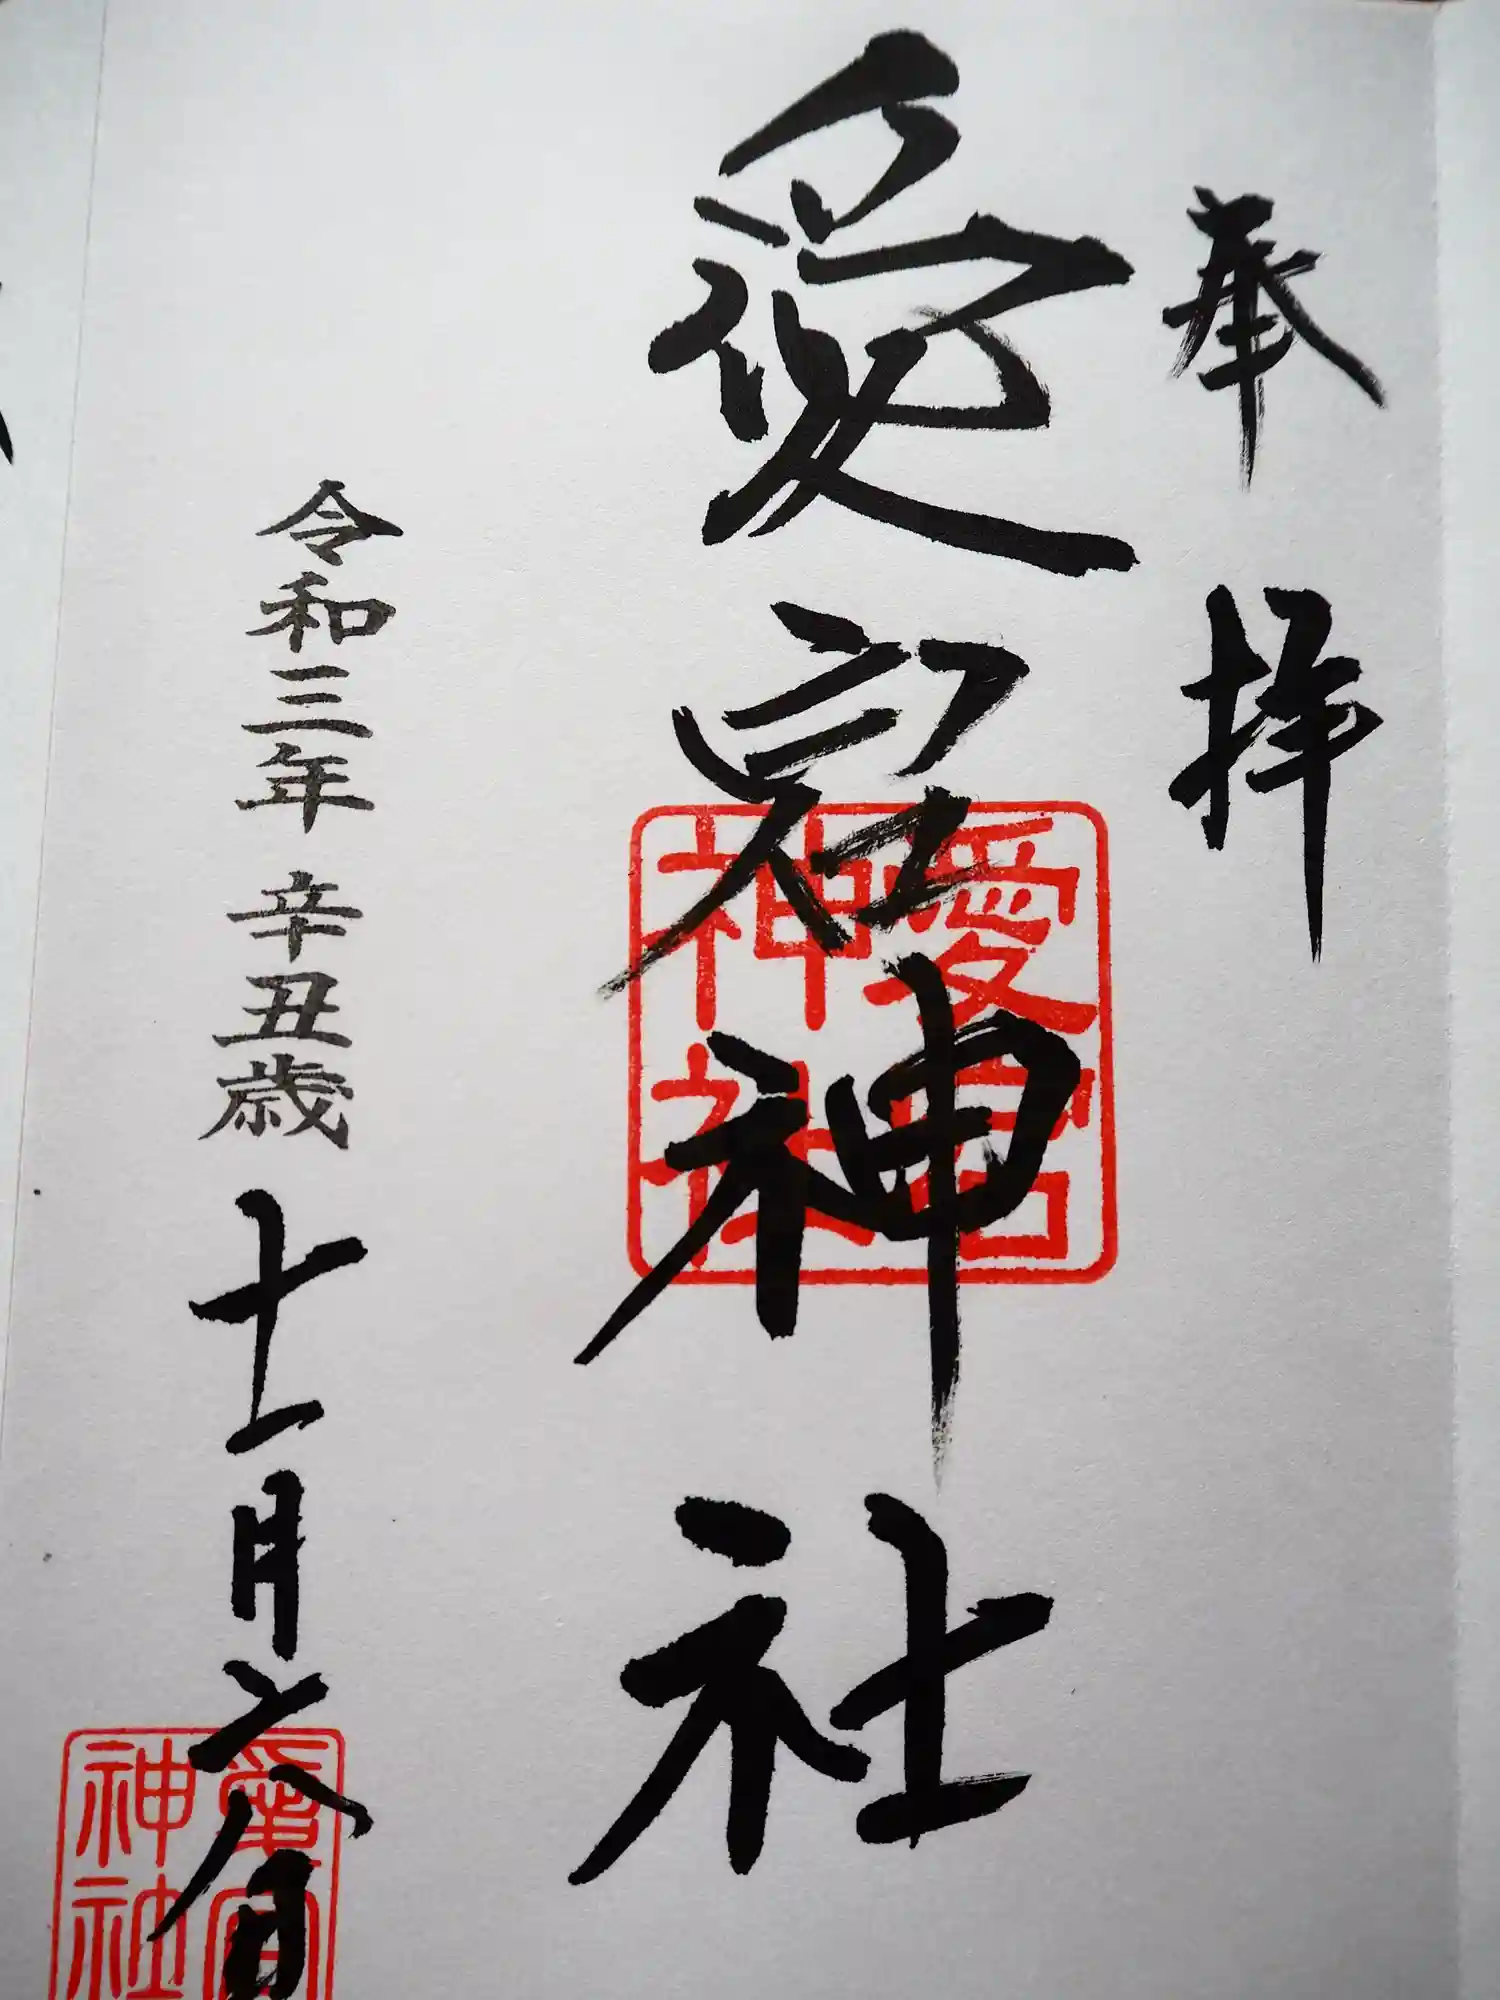 奉拝
愛宕神社
愛宕
神社
令和三年 辛丑歳 十一月六日
愛宕
神社